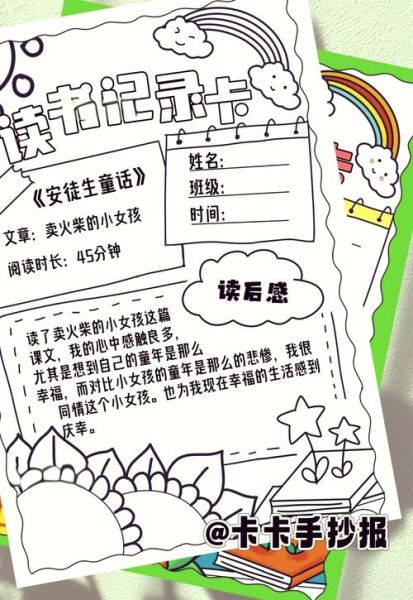 读书记录卡
《安徒生童话》
文章：卖火柴的小女孩
阅读时长：45分钟
姓名：
班级：
时间：
读后感
读了卖火柴的小女孩这篇
课文，我的心中感触良多，
尤其是想到自己的童年是那么
幸福，而对比小女孩的童年是那么的悲惨，我很
同情这个小女孩。也为我现在幸福的生活感到
庆幸。
@卡卡手抄报